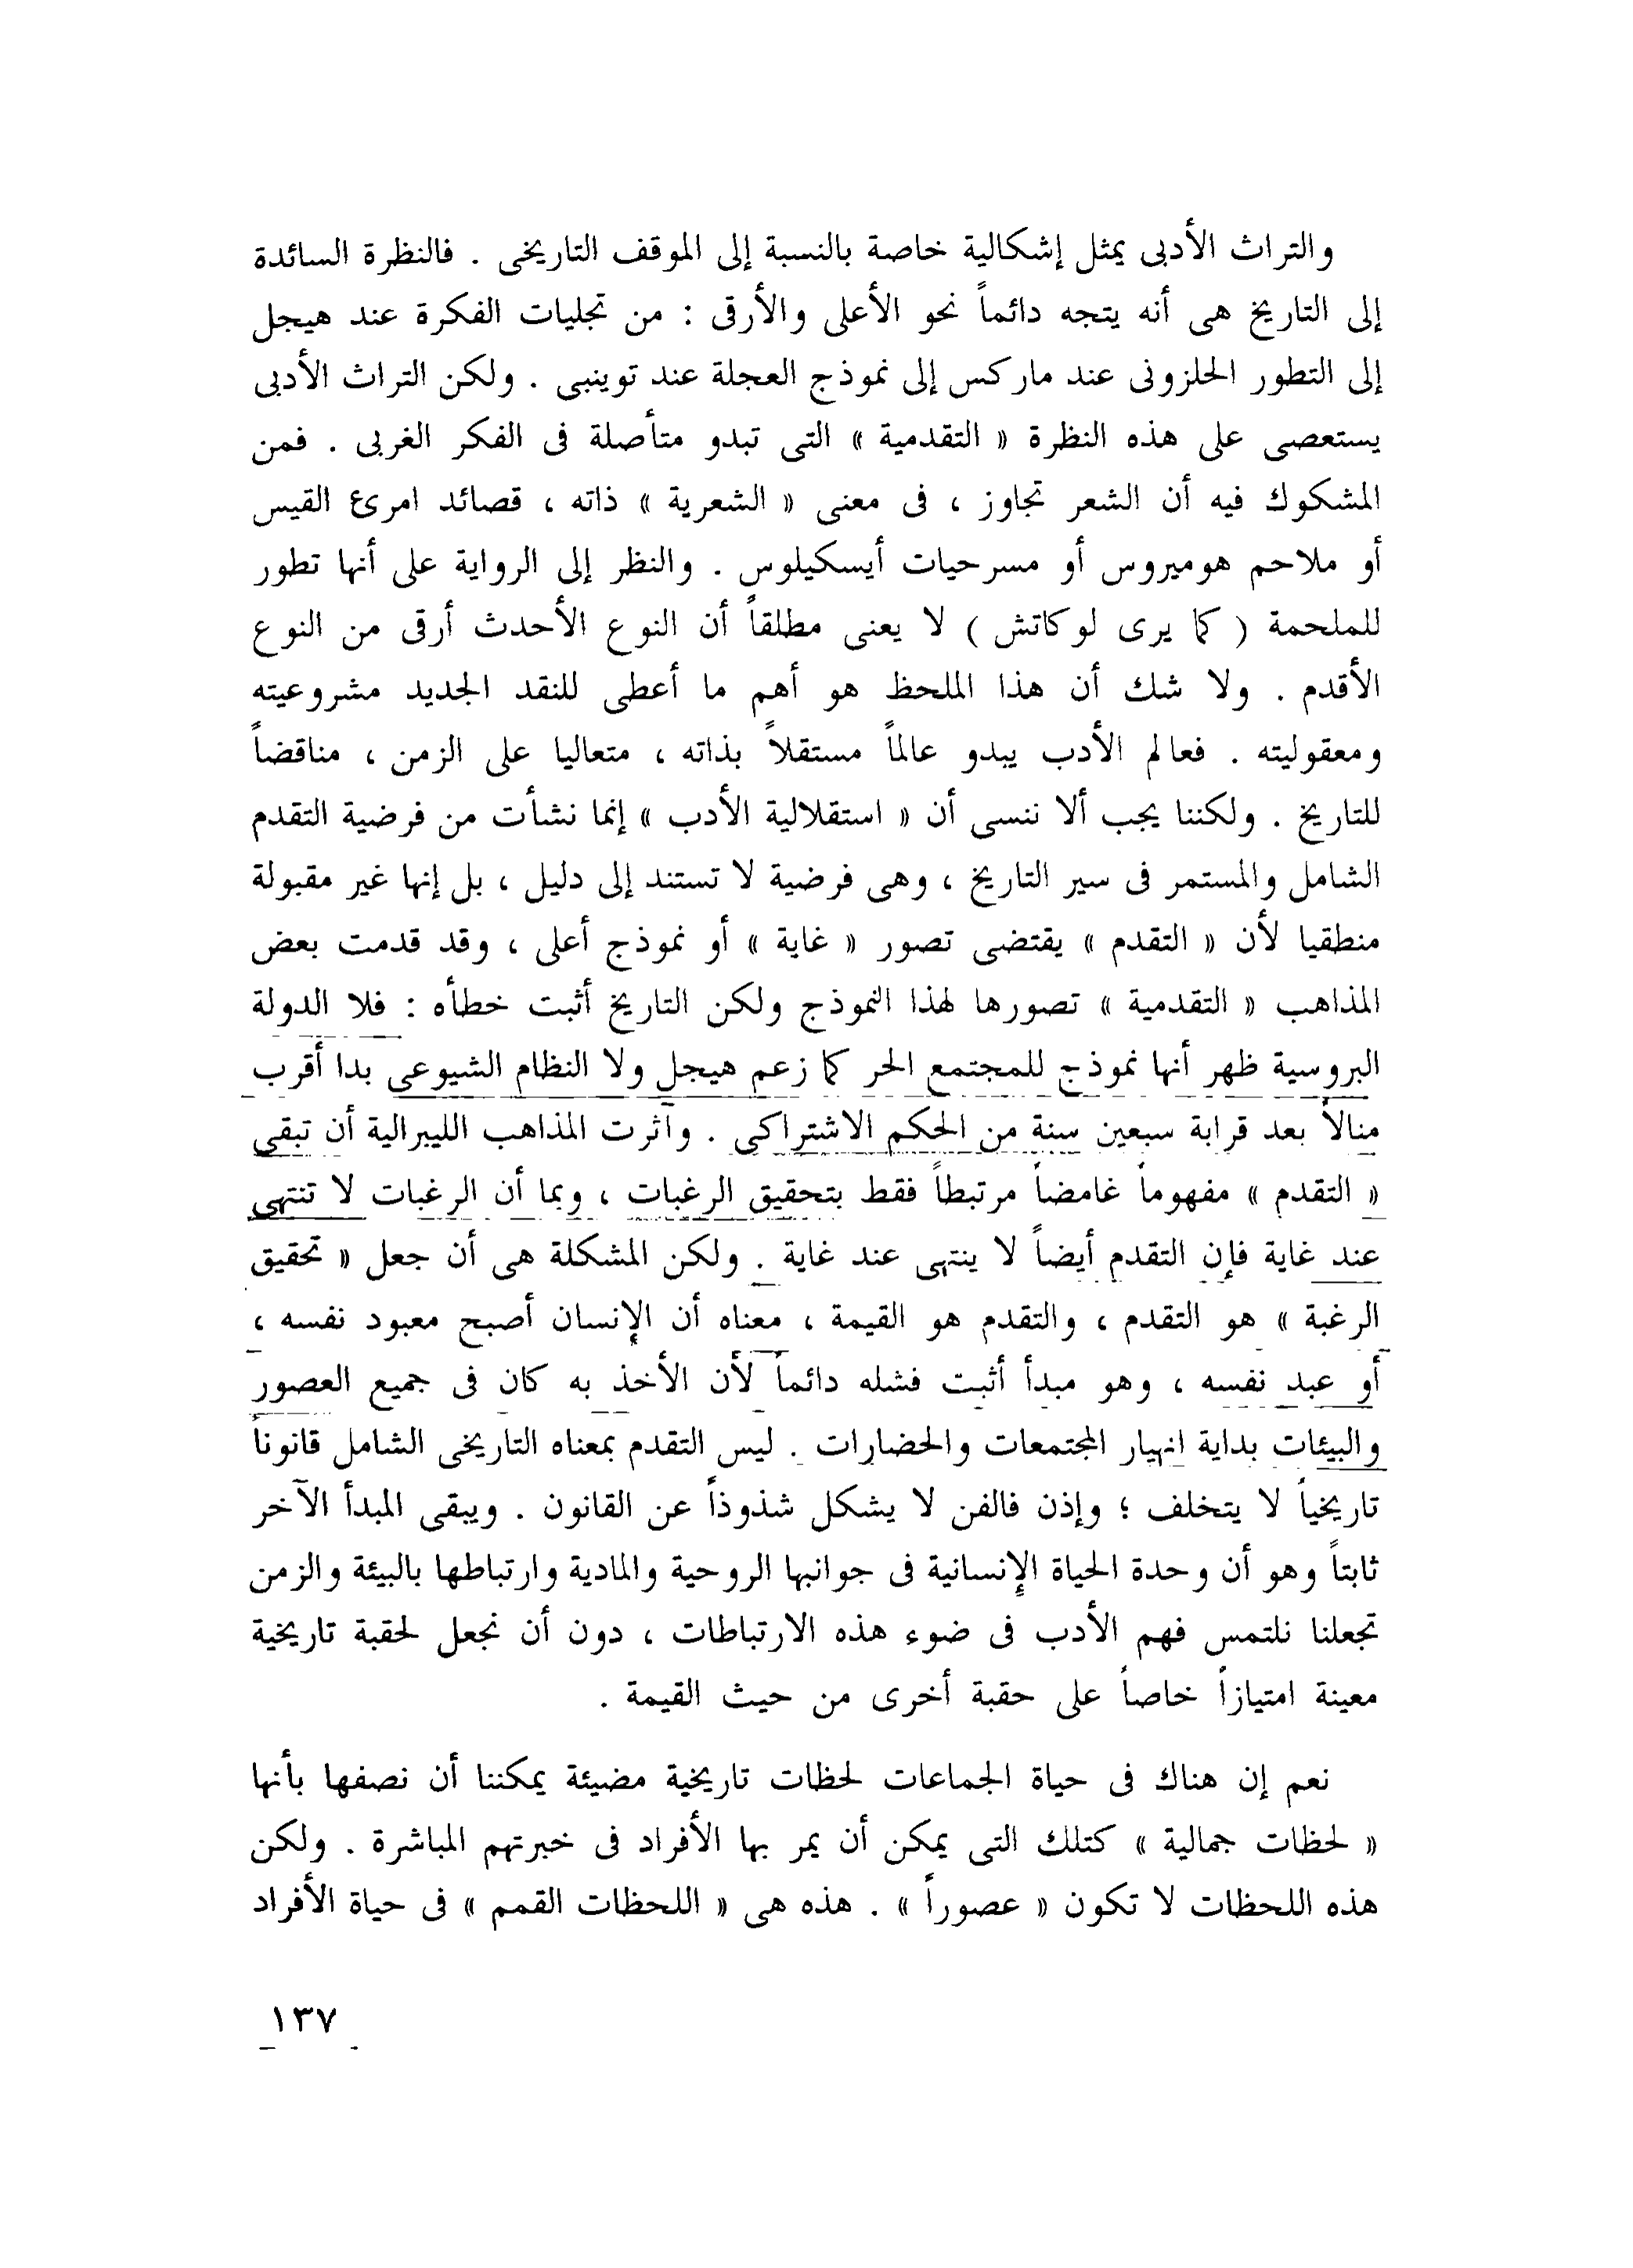 والتراث الأدبى يمثل إشكالية خاصة بالنسبة إلى الموقف التاريخى . فالنظرة السائدة
إلى التاريخ هى أنه يتجه دائماً نحو الأعلى والأرقى : من تجليات الفكرة عند هيجل
إلى التطور الحلزونى عند ماركس إلى نموذج العجلة عند توينبى . ولكن التراث الأدبى
يستعصى على هذه النظرة « التقدمية » التى تبدو متأصلة فى الفكر الغربى . فمن
المشكوك فيه أن الشعر تجاوز ، فى معنى « الشعرية » ذاته ، قصائد امرئ القيس
أو ملاحم هوميروس أو مسرحيات أيسكيلوس . والنظر إلى الرواية على أنها تطور
للملحمة ( كما يرى لوكاتش ) لا يعنى مطلقاً أن النوع الأحدث أرقى من النوع
الأقدم . ولا شك أن هذا الملحظ هو أهم ما أعطى للنقد الجديد مشروعيته
ومعقوليته . فعالم الأدب يبدو عالماً مستقلاً بذاته ، متعاليا على الزمن ، مناقضاً
للتاريخ . ولكننا يجب ألا ننسى أن « استقلالية الأدب » إنما نشأت من فرضية التقدم
الشامل والمستمر فى سير التاريخ ، وهى فرضية لا تستند إلى دليل ، بل إنها غير مقبولة
منطقيا لأن « التقدم » يقتضى تصور « غاية » أو نموذج أعلى ، وقد قدمت بعض
المذاهب « التقدمية » تصورها لهذا النموذج ولكن التاريخ أثبت خطأه : فلا الدولة
البروسية ظهر أنها نموذج للمجتمع الحر كما زعم هيجل ولا النظام الشيوعى بدا أقرب
منالاً بعد قرابة سبعين سنة من الحكم الاشتراكى . وآثرت المذاهب الليبرالية أن تبقى
« التقدم » مفهوماً غامضاً مرتبطاً فقط بتحقيق الرغبات ، وبما أن الرغبات لا تنتهى
عند غاية فإن التقدم أيضاً لا ينتهى عند غاية . ولكن المشكلة هى أن جعل « تحقيق
الرغبة » هو التقدم ، والتقدم هو القيمة ، معناه أن الإنسان أصبح معبود نفسه ،
أو عبد نفسه ، وهو مبدأ أثبت فشله دائماً لأن الأخذ به كان فى جميع العصور
والبيئات بداية انهيار المجتمعات والحضارات . ليس التقدم بمعناه التاريخى الشامل قانوناً
تاريخياً لا يتخلف ؛ وإذن فالفن لا يشكل شذوذاً عن القانون . ويبقى المبدأ الآخر
ثابتاً وهو أن وحدة الحياة الإنسانية فى جوانبها الروحية والمادية وارتباطها بالبيئة والزمن
تجعلنا نلتمس فهم الأدب فى ضوء هذه الارتباطات ، دون أن نجعل لحقبة تاريخية
معينة امتيازاً خاصاً على حقبة أخرى من حيث القيمة .
نعم إن هناك فى حياة الجماعات لحظات تاريخية مضيئة يمكننا أن نصفها بأنها
« لحظات جمالية » كتلك التى يمكن أن يمر بها الأفراد فى خبرتهم المباشرة . ولكن
هذه اللحظات لا تكون « عصوراً » . هذه هى « اللحظات القمم » فى حياة الأفراد
١٣٧